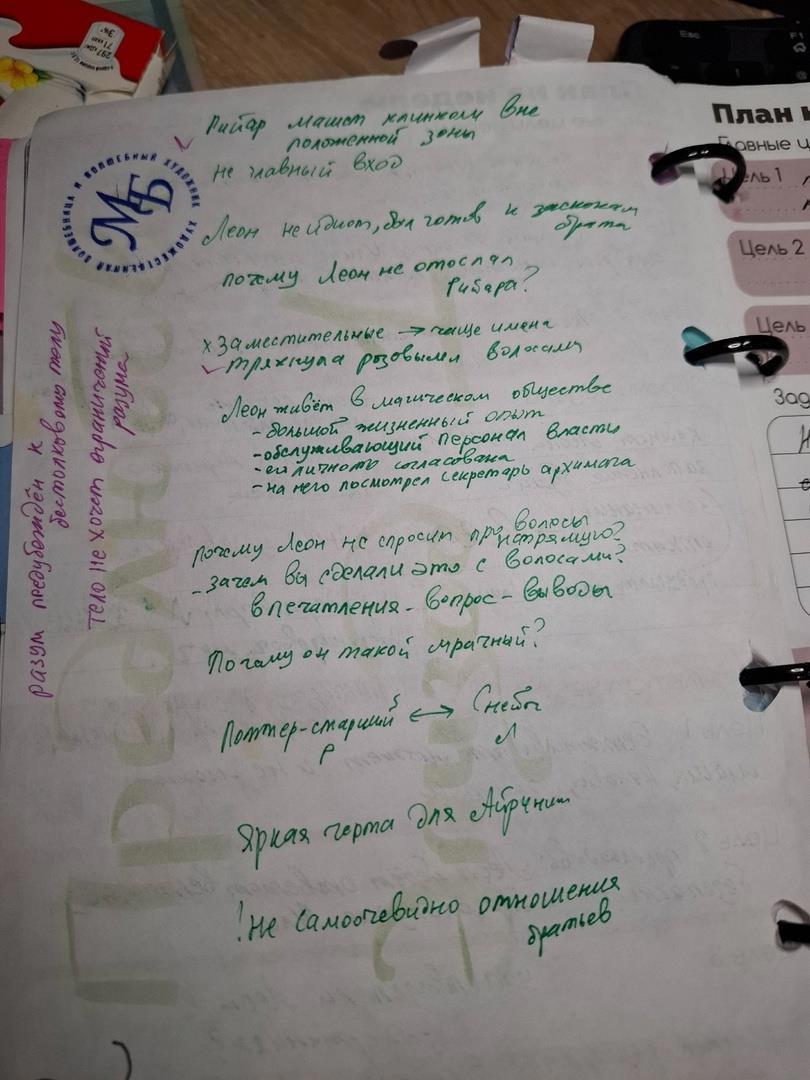 297 кДж
71 ккал
3%
Esc
F1
План н
Главные ц
Цель 1
Цель 2
Цель
Зад
МБ
ВОЛШЕБНИЦА И ВОЛШЕБНЫЙ ХУДОЖНИК ХУДОЖЕСТВЕННАЯ
машет клинком вне
положенной зоны
не главный вход
Леон не идиот, был готов к заскокам
брата
почему Леон не отослал
Рибара?
х Заместительные → чаще имена
тряхнула розовыми волосами
Леон живёт в магическом обществе
- большой жизненный опыт
- обслуживающий персонал власти
- ей личность согласована
- на него посмотрел секретарь архимага
почему Леон не спросил про волосы
напрямую?
- зачем вы сделали это с волосами?
впечатления - вопрос - выводы
Почему он такой мрачный?
Поттер-старший ↔ Снейп
Р Л
Яркая черта для
! Не самоочевидно отношения
братьев
разум предубеждён к
бестолковому телу
тело не хочет ограничений
разума